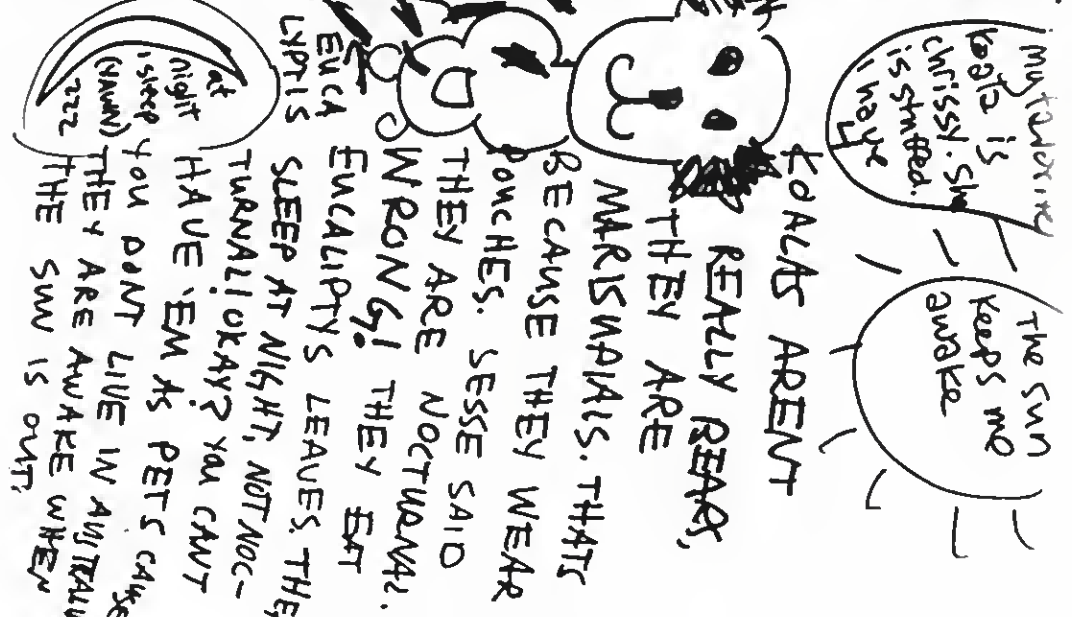 my favorite
koala is
chrissy. she
is stuffed.
i have
4
The sun
keeps me
awake
KOALAS ARENT
REALLY BEARS,
THEY ARE
MARISUPIALS. THATS
BECAUSE THEY WEAR
POUCHES. SESSE SAID
THEY ARE NOCTURNAL.
WRONG! THEY EAT
EUCALIPTYS LEAVES. THEY
SLEEP AT NIGHT, NOT NOC-
TURNAL! OKAY? YOU CANT
HAVE 'EM AS PETS CAUSE
YOU DONT LIVE IN AUSTRALIA
THEY ARE AWAKE WHEN
THE SUN IS OUT.
EUCA
LYPTIS
at
night
i sleep
(YAWN)
zzz